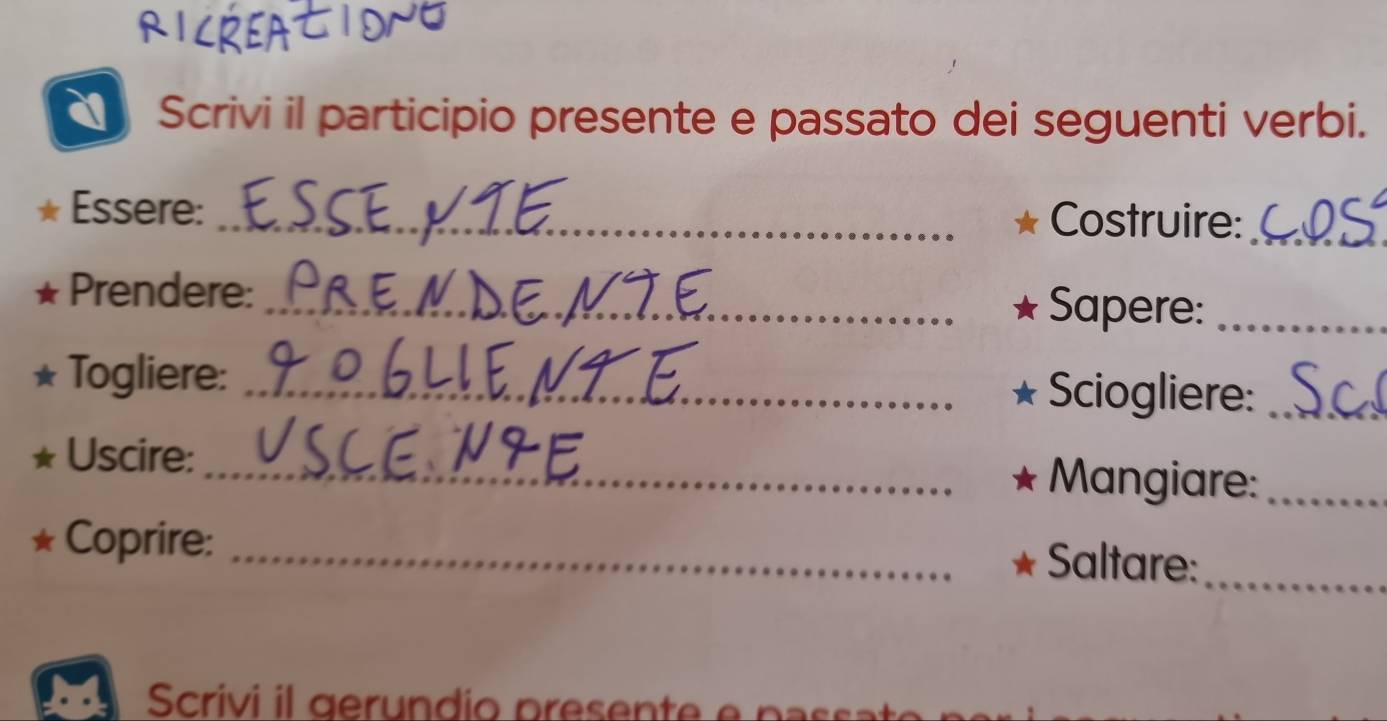 RICREATIONE
Scrivi il participio presente e passato dei seguenti verbi.
Essere: ESSENTE
Prendere: PRENDENTE
Togliere: TOGLIENTE
Uscire: USCENTE
Coprire:
Costruire: COS
Sapere:
Sciogliere: SC
Mangiare:
Saltare:
Scrivi il gerundio presente e passato